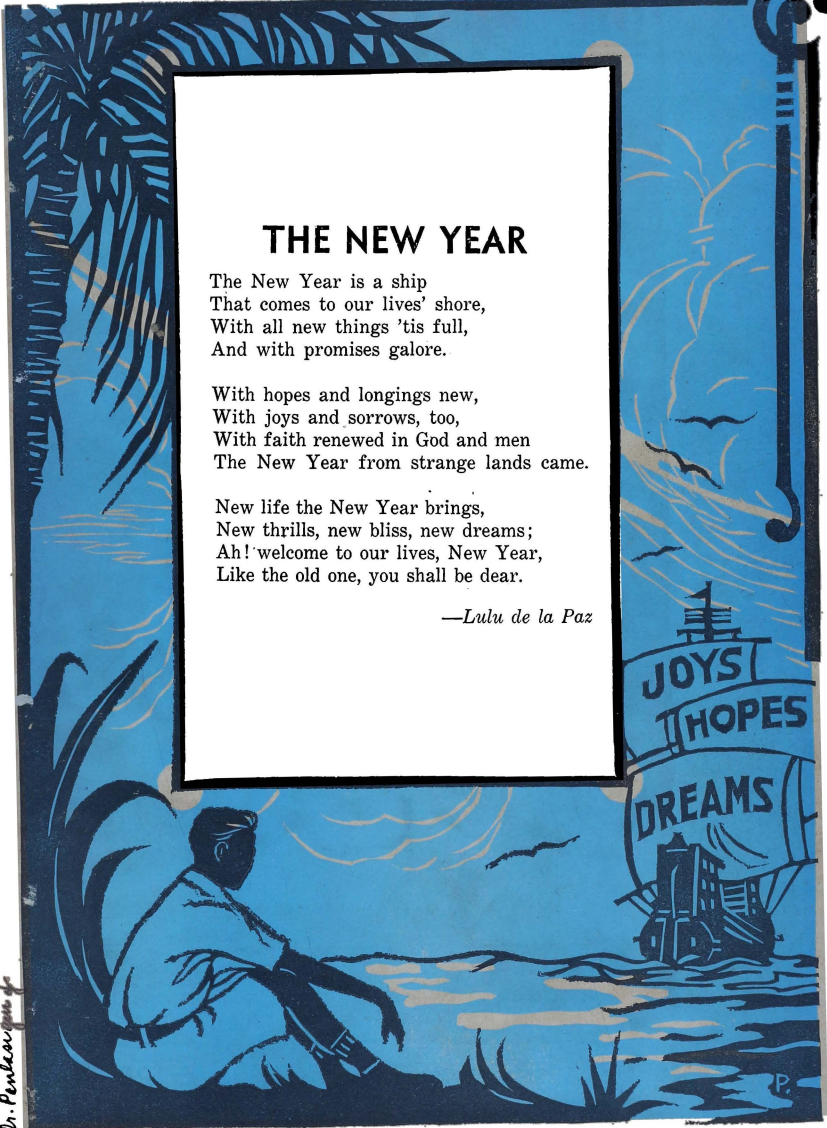 THE NEW YEAR
The New Year is a ship
That comes to our lives' shore,
With all new things 'tis full,
And with promises galore.
With hopes and longings new,
With joys and sorrows, too,
With faith renewed in God and men
The New Year from strange lands came.
New life the New Year brings,
New thrills, new bliss, new dreams;
Ah! welcome to our lives, New Year,
Like the old one, you shall be dear.
—Lulu de la Paz
JOYS
HOPES
DREAMS
P.